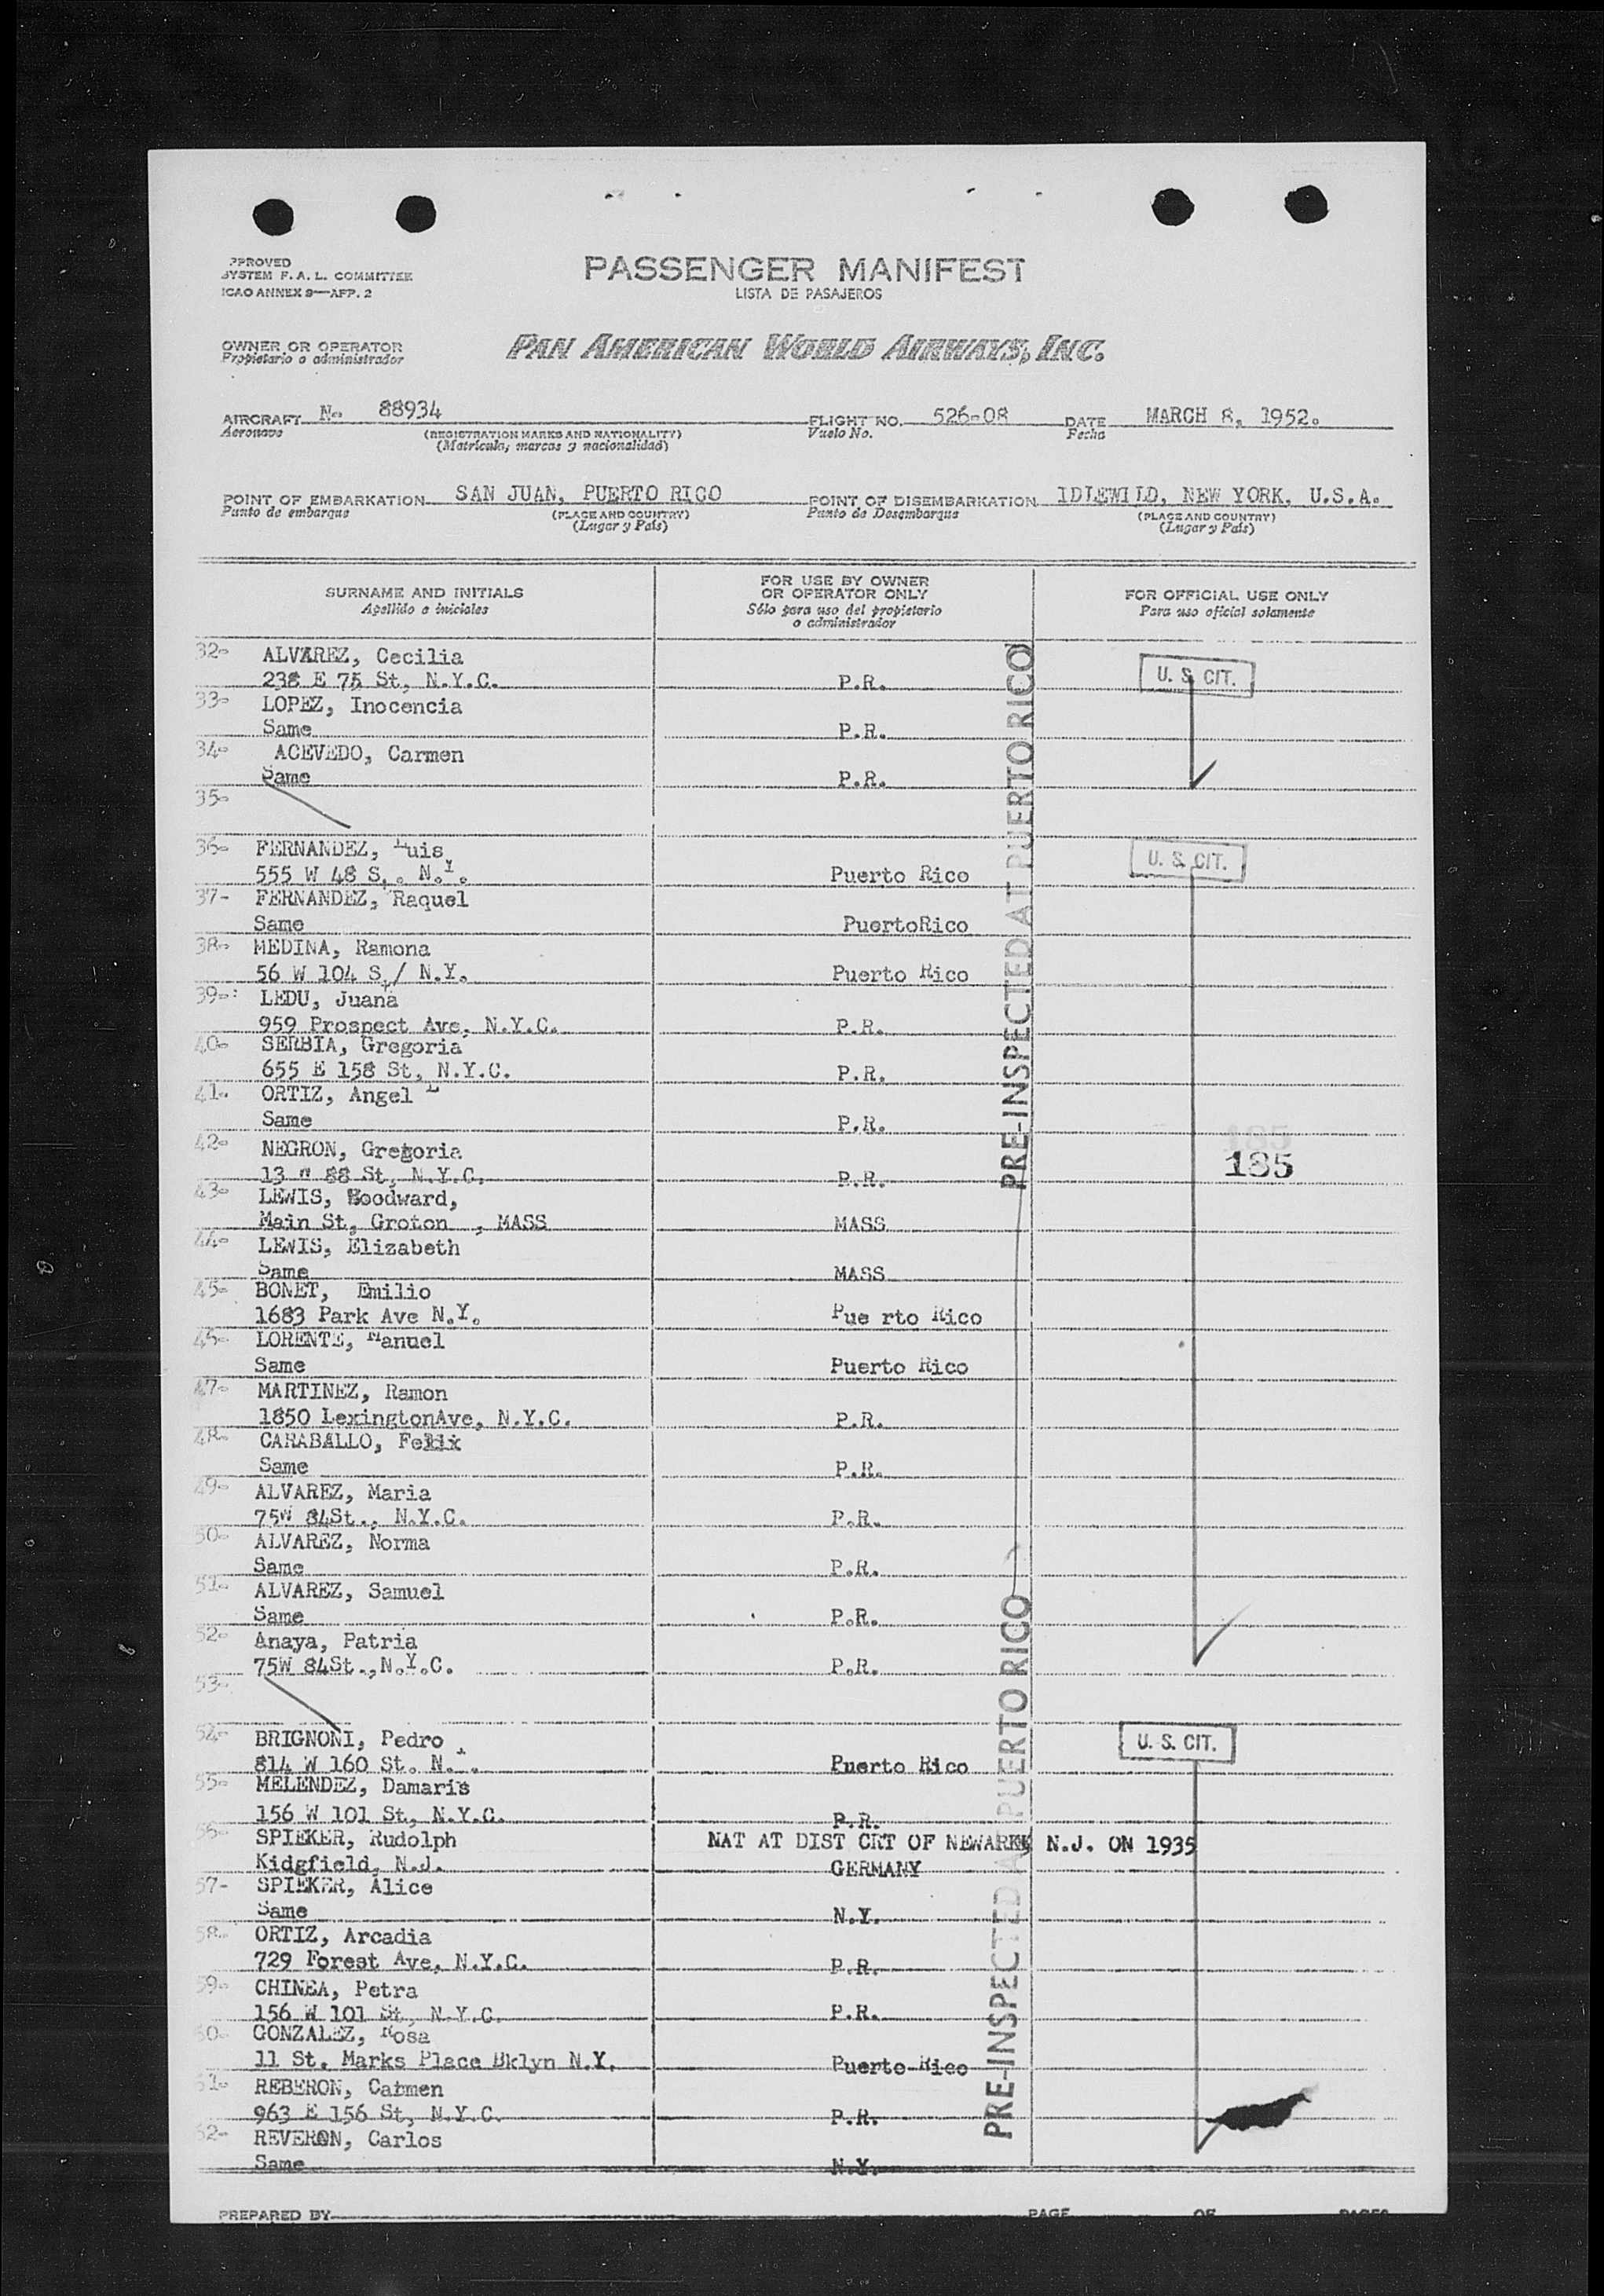 PPROVED
SYSTEM F. A. L. COMMITTEE
ICAO ANNEX 9—APP. 2
PASSENGER MANIFEST
LISTA DE PASAJEROS
OWNER OR OPERATOR
Propietario o administrador
PAN AMERICAN WORLD AIRWAYS, INC.
AIRCRAFT No 88934 FLIGHT NO. 526-08 DATE MARCH 8, 1952.
Aeronave (REGISTRATION MARKS AND NATIONALITY) Vuelo No. Fecha
(Matrícula, marcas y nacionalidad)
POINT OF EMBARKATION SAN JUAN, PUERTO RICO POINT OF DISEMBARKATION IDLEWILD, NEW YORK, U.S.A.
Punto de embarque (PLACE AND COUNTRY) Punto de Desembarque (PLACE AND COUNTRY)
(Lugar y País) (Lugar y País)
SURNAME AND INITIALS FOR USE BY OWNER OR OPERATOR ONLY FOR OFFICIAL USE ONLY
Apellido e iniciales Sólo para uso del propietario o administrador Para uso oficial solamente
32- ALVAREZ, Cecilia
238 E 75 St, N.Y.C. P.R. U. S. CIT.
33- LOPEZ, Inocencia
Same P.R.
34- ACEVEDO, Carmen
Same P.R.
35-
PRE-INSPECTED AT PUERTO RICO
36- FERNANDEZ, Luis
555 W 48 S,. N.Y. Puerto Rico U. S. CIT.
37- FERNANDEZ, Raquel
Same PuertoRico
38- MEDINA, Ramona
56 W 104 S,/ N.Y. Puerto Rico
39-: LEDU, Juana
959 Prospect Ave, N.Y.C. P.R.
40- SERBIA, Gregoria
655 E 158 St, N.Y.C. P.R.
41- ORTIZ, Angel L
Same P.R.
42- NEGRON, Gregoria
13 W 88 St, N.Y.C. P.R. 185
43- LEWIS, Woodward,
Main St, Groton , MASS MASS
44- LEWIS, Elizabeth
Same MASS
45- BONET, Emilio
1683 Park Ave N.Y. Pue rto Rico
46- LORENTE, Manuel
Same Puerto Rico
47- MARTINEZ, Ramon
1850 LexingtonAve, N.Y.C. P.R.
48- CARABALLO, Felix
Same P.R.
49- ALVAREZ, Maria
75W 84St., N.Y.C. P.R.
50- ALVAREZ, Norma
Same P.R.
51- ALVAREZ, Samuel
Same P.R.
52- Anaya, Patria
75W 84St.,N.Y.C. P.R.
53-
PRE-INSPECTED AT PUERTO RICO
54- BRIGNONI, Pedro U. S. CIT.
814 W 160 St. N. . Puerto Rico
55- MELENDEZ, Damaris
156 W 101 St, N.Y.C. P.R.
56- SPIEKER, Rudolph NAT AT DIST CRT OF NEWARK N.J. ON 1935
Kidgfield, N.J. GERMANY
57- SPIEKER, Alice
Same N.Y.
58- ORTIZ, Arcadia
729 Forest Ave, N.Y.C. P.R.
59- CHINEA, Petra
156 W 101 St, N.Y.C. P.R.
60- GONZALEZ, Rosa
11 St. Marks Place Bklyn N.Y. Puerto Rico
61- REBERON, Carmen
963 E 156 St, N.Y.C. P.R.
62- REVERON, Carlos
Same N.Y.
PREPARED BY PAGE OF PAGES